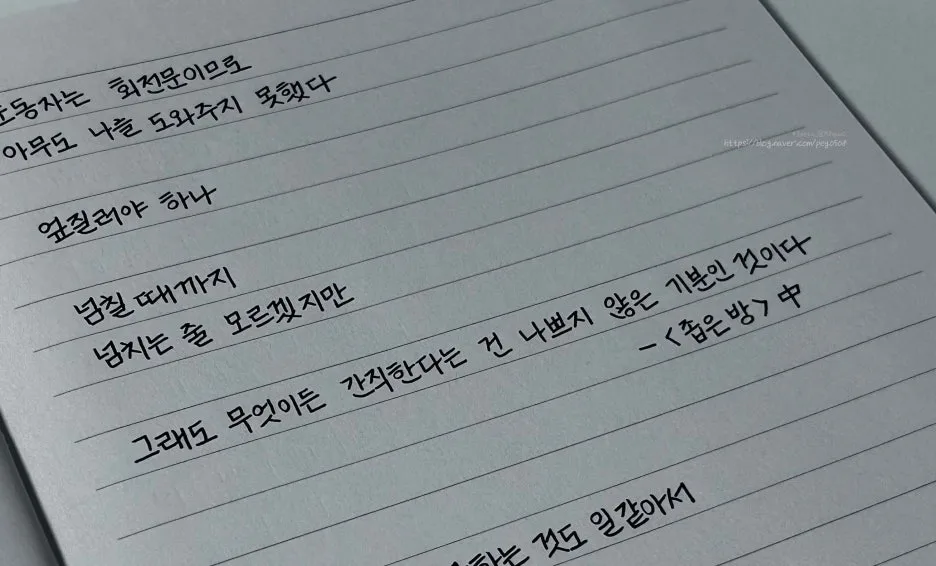 동자는 회전문이므로
아무도 나를 도와주지 못했다
엎질러야 하나
넘칠 때까지
넘치는 줄 모르겠지만
그래도 무엇이든 간직한다는 건 나쁘지 않은 기분인 것이다
- <좁은 방> 中
하는 것도 일같아서